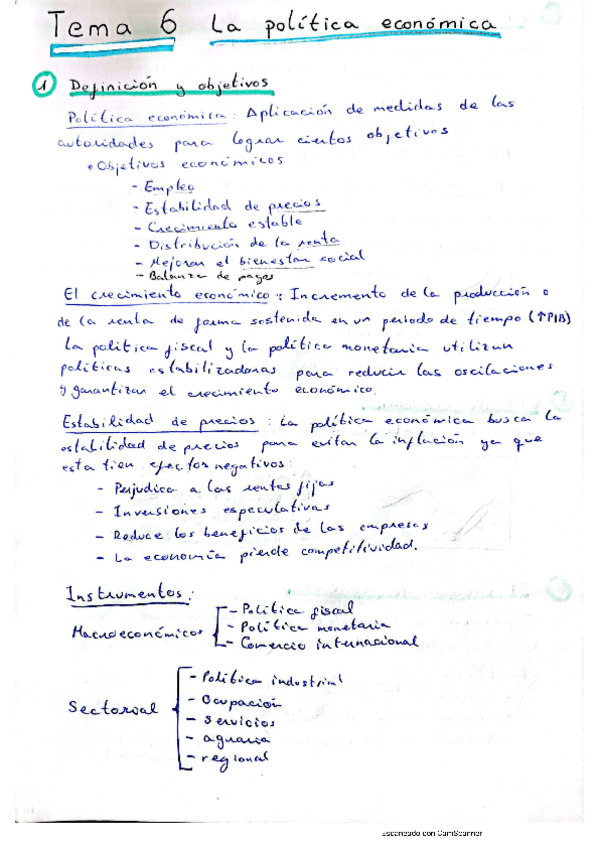 Tema 6 La política económica
1 Definición y objetivos
Política económica: Aplicación de medidas de las
autoridades para lograr ciertos objetivos
• Objetivos económicos
- Empleo
- Estabilidad de precios
- Crecimiento estable
- Distribución de la renta
- Mejorar el bienestar social
- Balanza de pagos
El crecimiento económico: Incremento de la producción o
de la renta de forma sostenida en un periodo de tiempo (↑PIB)
La política fiscal y la política monetaria utilizan
políticas estabilizadoras para reducir las oscilaciones
y garantizar el crecimiento económico.
Estabilidad de precios: La política económica busca la
estabilidad de precios para evitar la inflación ya que
esta tien efectos negativos:
- Perjudica a las rentas fijas
- Inversiones especulativas
- Reduce los beneficios de las empresas
- La economía pierde competitividad.
Instrumentos:
- Política fiscal
Macroeconómicos - Política monetaria
- Comercio internacional
- Política industrial
- Ocupación
Sectorial - Servicios
- agraria
- regional
Escaneado con CamScanner